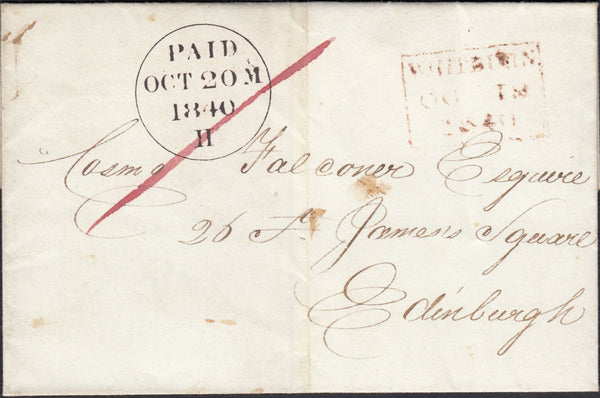 PAID
OCT 20 M
1840
H
WHITHORN
OC 19
1840
Cosmo Falconer Esquire
26 St. James's Square
Edinburgh